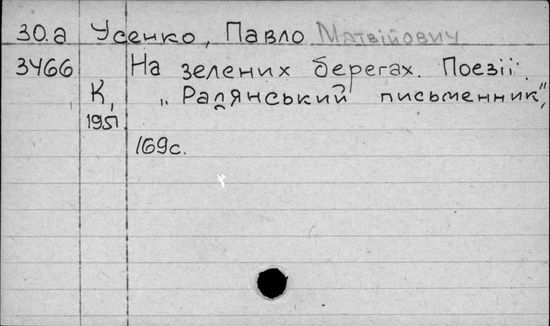 30.а Усенко, Павло Матвійович
3466 На зелених берегах. Поезії.
К, „Радянський письменник",
1951.
169с.